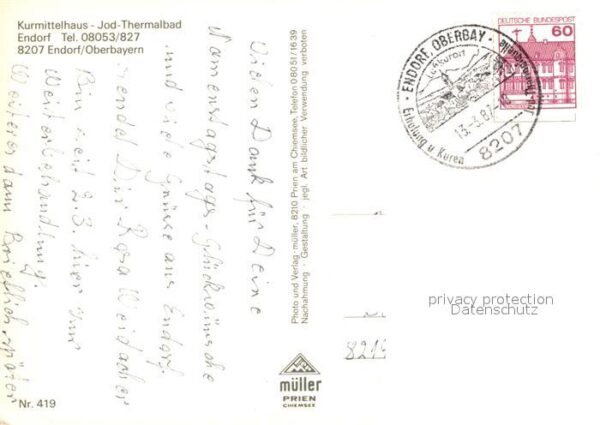 Kurmittelhaus - Jod-Thermalbad
Endorf Tel. 08053/827
8207 Endorf/Oberbayern
Vielen Dank für Deine
Namenstags-Glückwünsche
und viele Grüsse aus Endorf.
sendet Dir Rosa Weidacher
Bin seit 2.3. hier zur
Weiterbehandlung.
Weiteres dann Brieflich später
Nr. 419
Photo und Verlag müller, 8210 Prien am Chiemsee, Telefon 08051/1639
Nachahmung · Gestaltung · jegl. Art bildlicher Verwendung verboten
müller
PRIEN
CHIEMSEE
ENDORF, OBERBAY
Luftkurort
Erholung u Kuren
8207
DEUTSCHE BUNDESPOST
60
821
privacy protection
Datenschutz